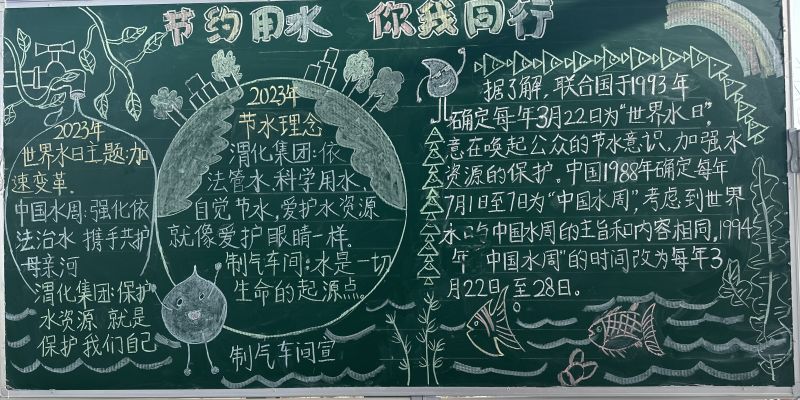 节约用水 你我同行
2023年
世界水日主题:加
速变革.
中国水周:强化依
法治水 携手共护
母亲河
渭化集团:保护
水资源 就是
保护我们自己
2023年
节水理念
渭化集团:依
法管水,科学用水,
自觉节水,爱护水资源
就像爱护眼睛一样。
制气车间:水是一切
生命的起源点。
制气车间宣
据了解,联合国于1993年
确定每年3月22日为“世界水日”,
意在唤起公众的节水意识,加强水
资源的保护。中国1988年确定每年
7月1日至7日为“中国水周”,考虑到世界
水日与中国水周的主旨和内容相同,1994
年“中国水周”的时间改为每年3
月22日至28日。